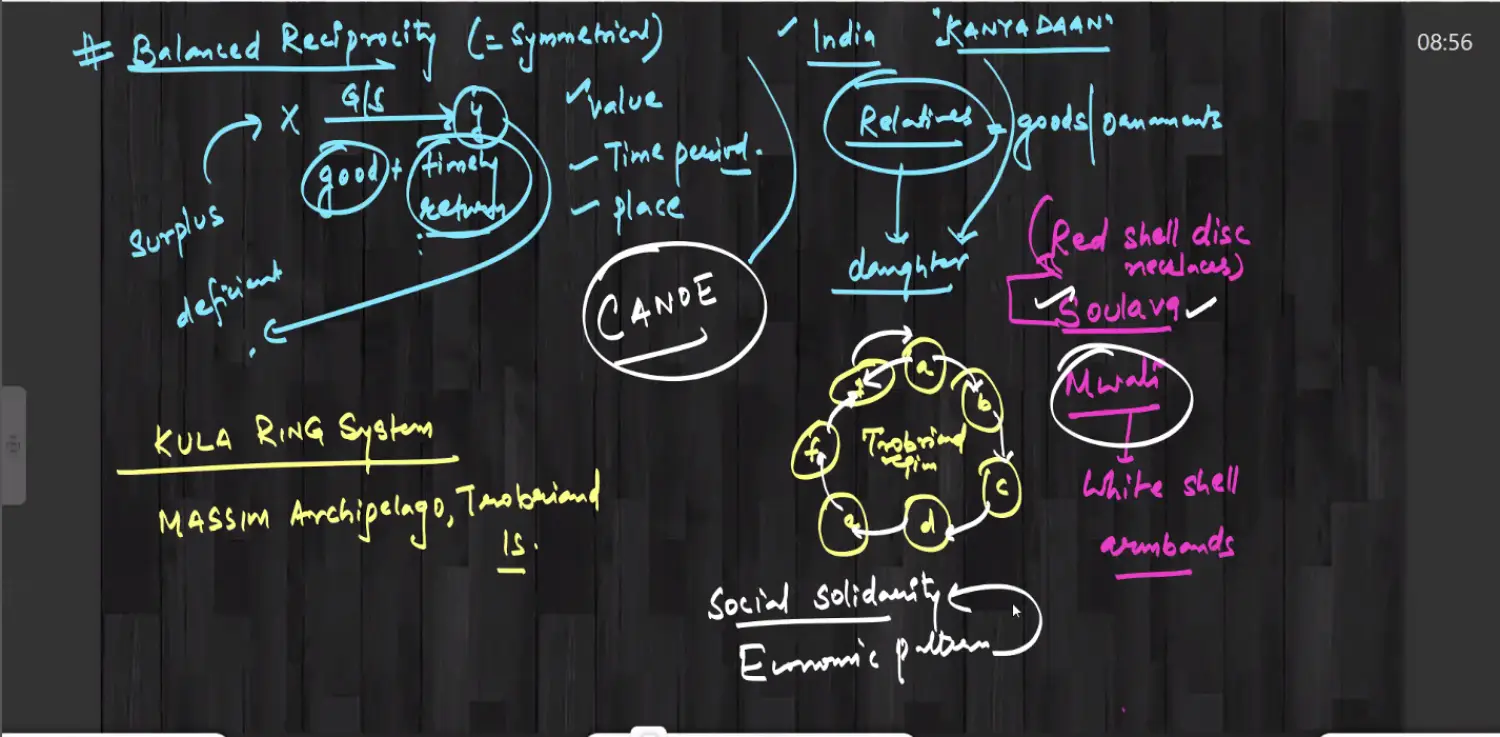 # Balanced Reciprocity (= Symmetrical)
X G/S y
good + timely return
Surplus
deficient
value
Time period.
place
CANOE
KULA RING System
MASSIM Archipelago, Trobriand
Is.
India "KANYADAAN"
Relatives - goods/ornaments
daughter
(Red shell disc
necklaces)
Soulava
Mwali
White shell
armbands
a
b
c
d
e
f
Trobriand
region
Social solidarity
Economic pattern
08:56